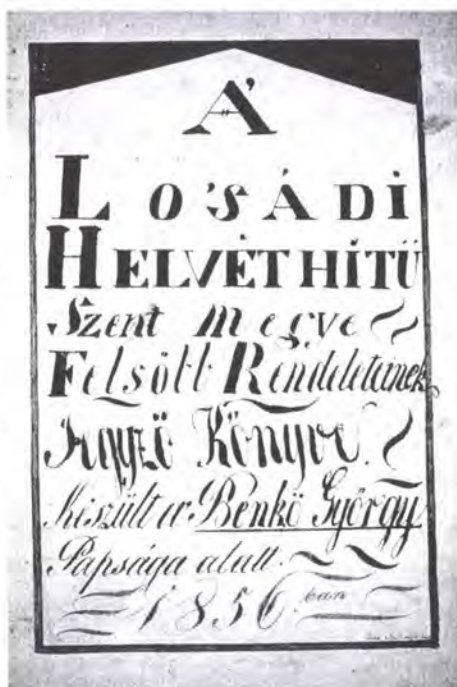 A
LO'SÁDI
HELVÉT HITŰ
Szent megye
Felsöbb Rendeleteinek
Jegyző Könyve.
Készült Benkö György
Papsága alatt.
1856 ban